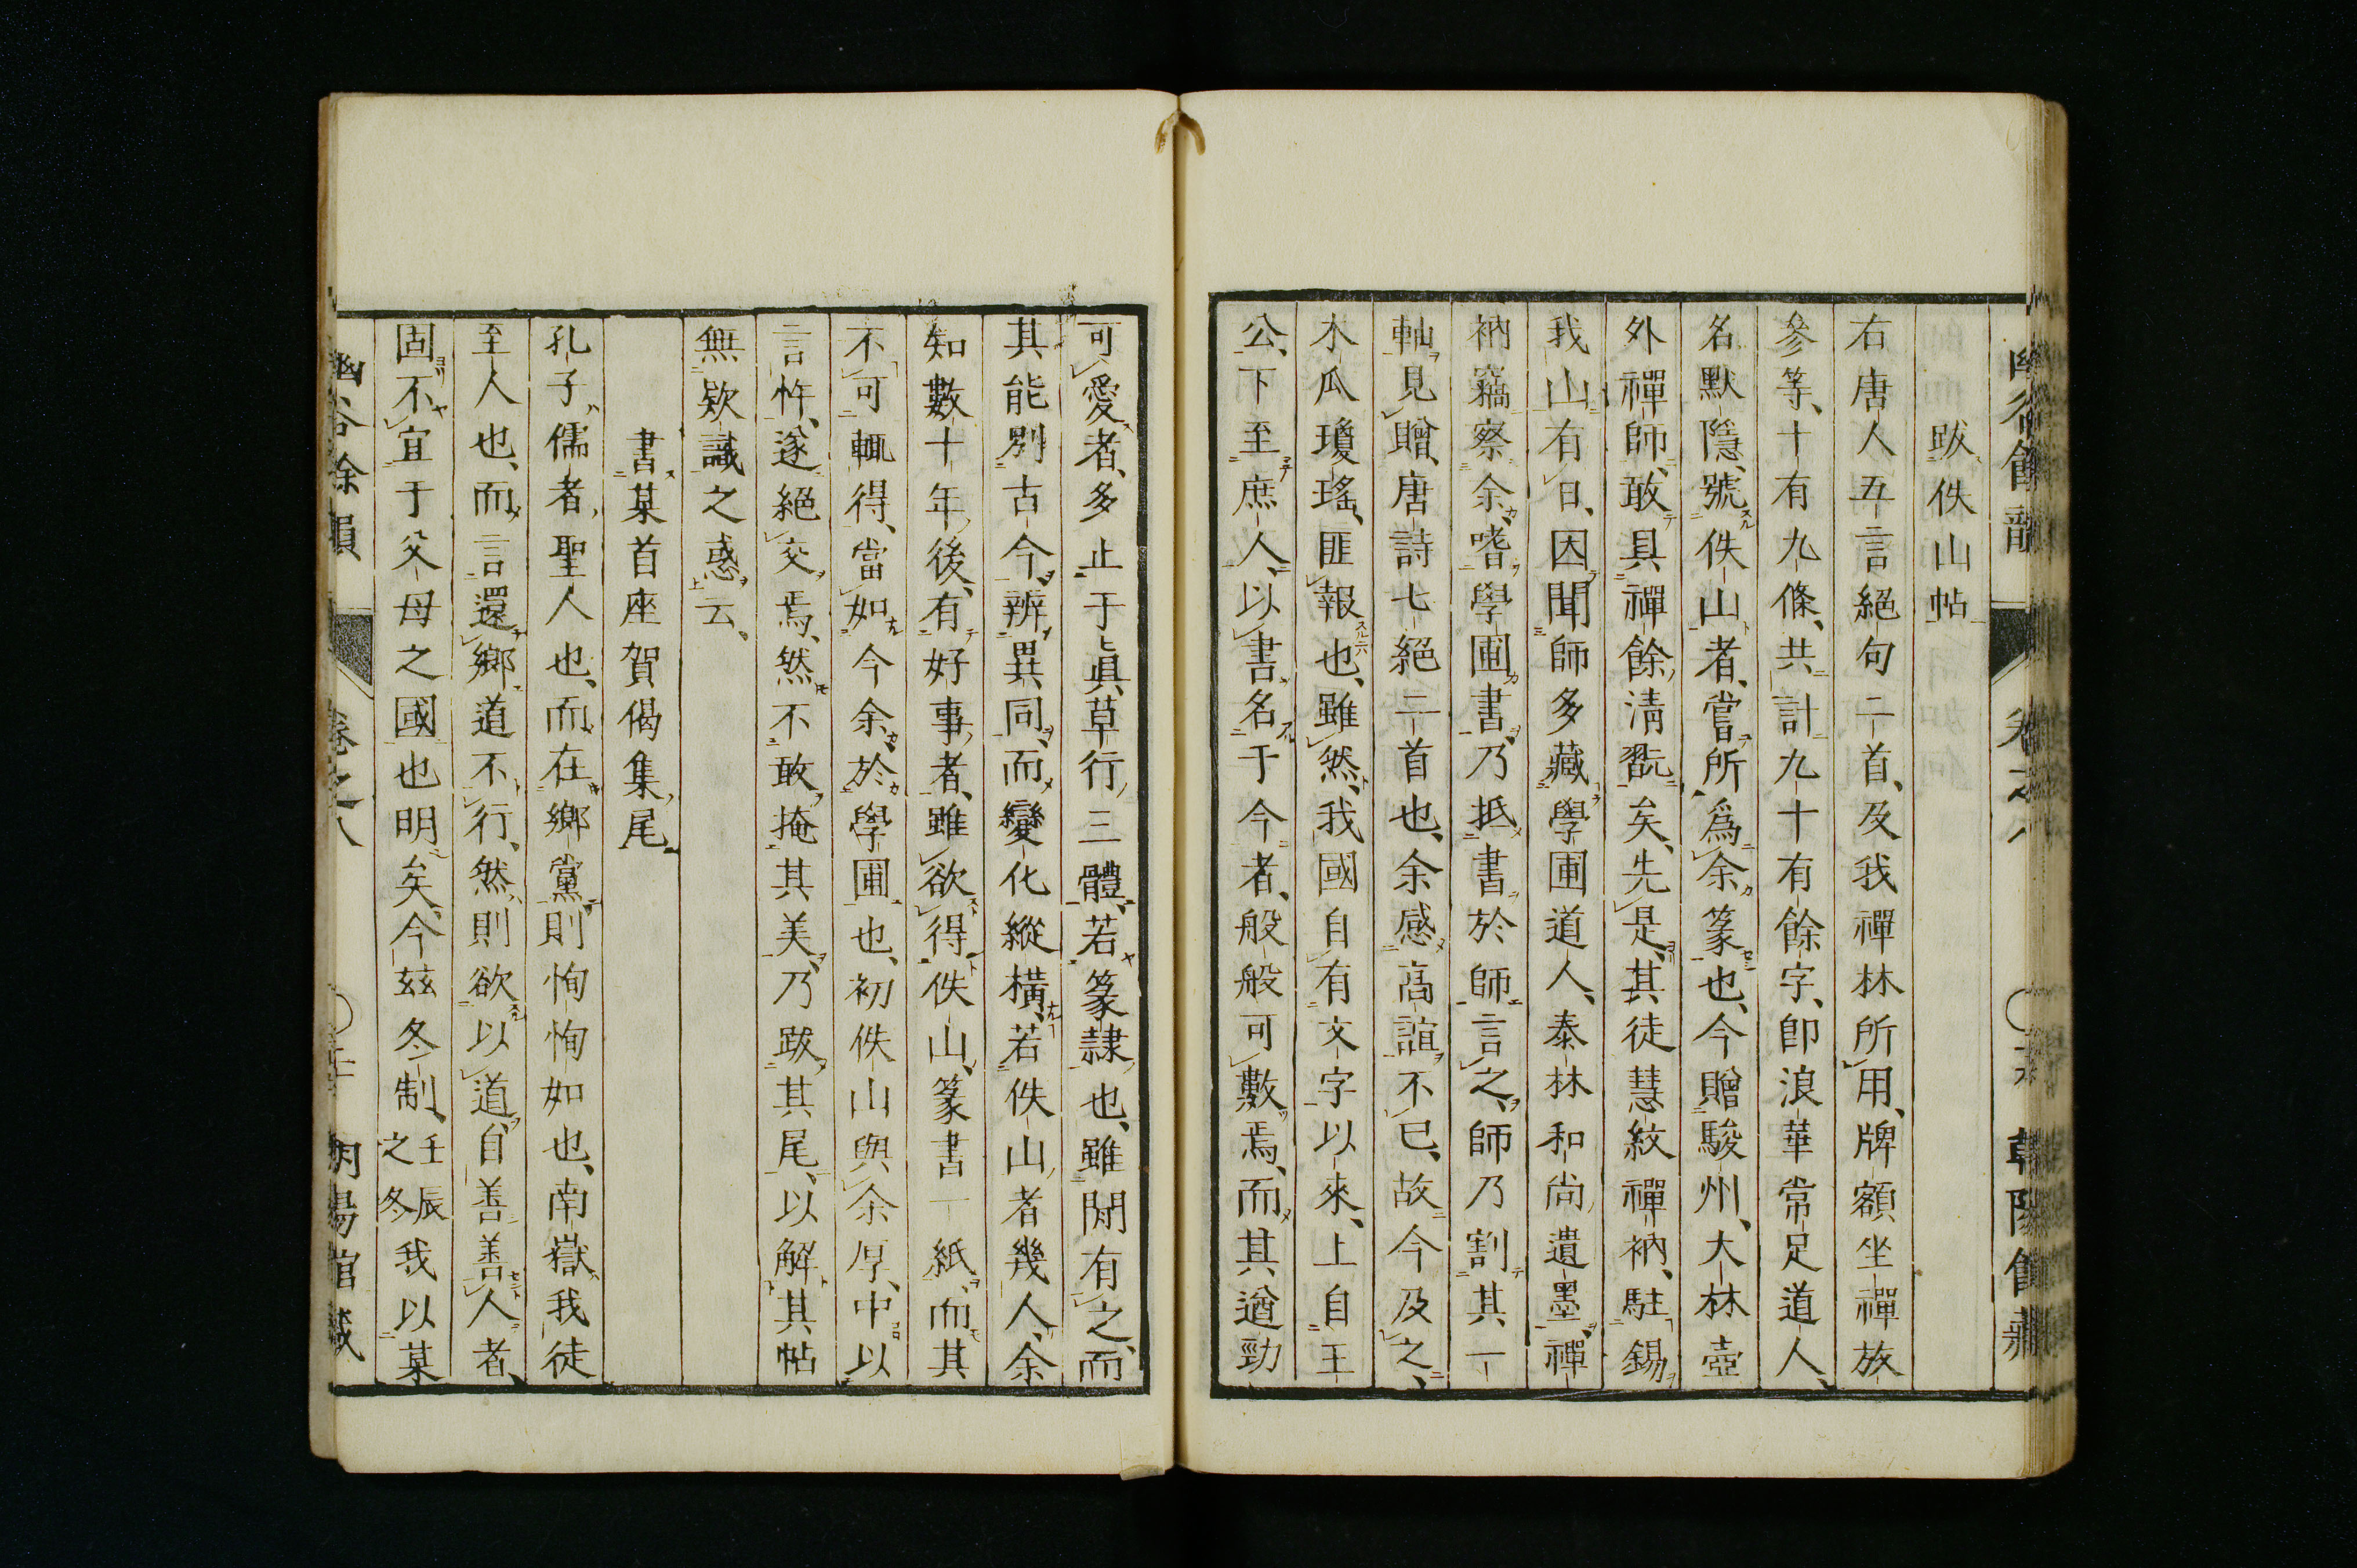 跋佚山帖
右唐人五言絕句二首、及我禪林所用、牌額坐禪放
參等、十有九條、共計九十有餘字、卽浪華常足道人、
名默隱、號佚山者、嘗所爲余篆也、今贈駿州、大林壺
外禪師、敢具禪餘清翫矣、先是、其徒慧紋禪衲、駐錫
我山有日、因聞師多藏學圃道人、泰林和尚遺墨、禪
衲竊察余嗜學圃書、乃抵書於師言之、師乃割其一
軸見贈、唐詩七絕二首也、余感高誼不已、故今及之、
木瓜瓊瑤、匪報也、雖然、我國自有文字以來、上自王
公、下至庶人、以書名于今者、般般可數焉、而其遒勁
可愛者、多止于眞草行三體、若篆隷也、雖間有之、而
其能別古今、辨異同、而變化縱橫、若佚山者幾人、余
知數十年後、有好事者、雖欲得佚山篆書一紙、而其
不可輒得、當如今余於學圃也、初佚山與余厚、中以
言忤、遂絕交焉、然不敢掩其美、乃跋其尾、以解其帖
無欵識之惑云、
書某首座賀偈集尾
孔子儒者聖人也、而在鄉黨則恂恂如也、南嶽我徒
至人也、而言還鄉道不行、然則欲以道自善善人者、
固不宜于父母之國也明矣、今茲冬制、壬辰之冬我以某
幽谷餘韻
卷之八